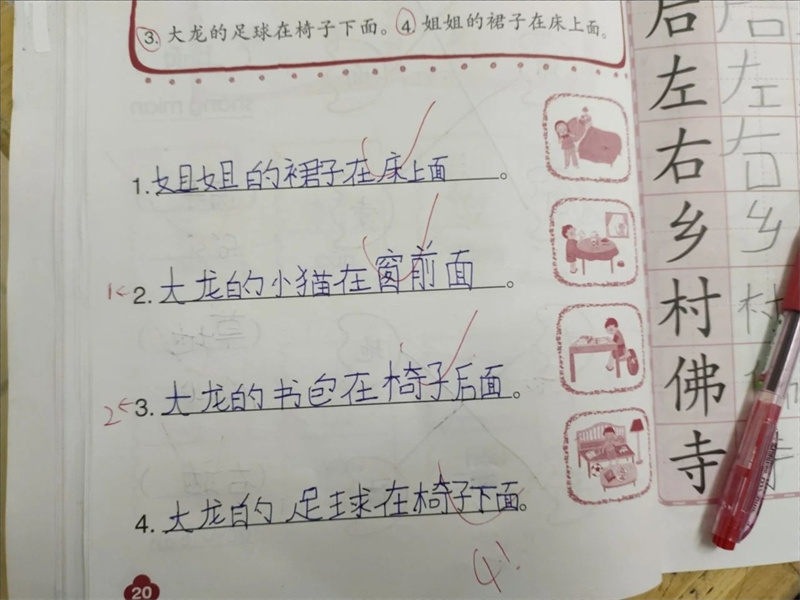 3. 大龙的足球在椅子下面。 4. 姐姐的裙子在床上面。
1. 姐姐的裙子在床上面。
1 2. 大龙的小猫在窗前面。
2 3. 大龙的书包在椅子后面。
4. 大龙的足球在椅子下面。
4!
20
后 后
左 左
右 右
乡 乡
村 村
佛
寺 寺